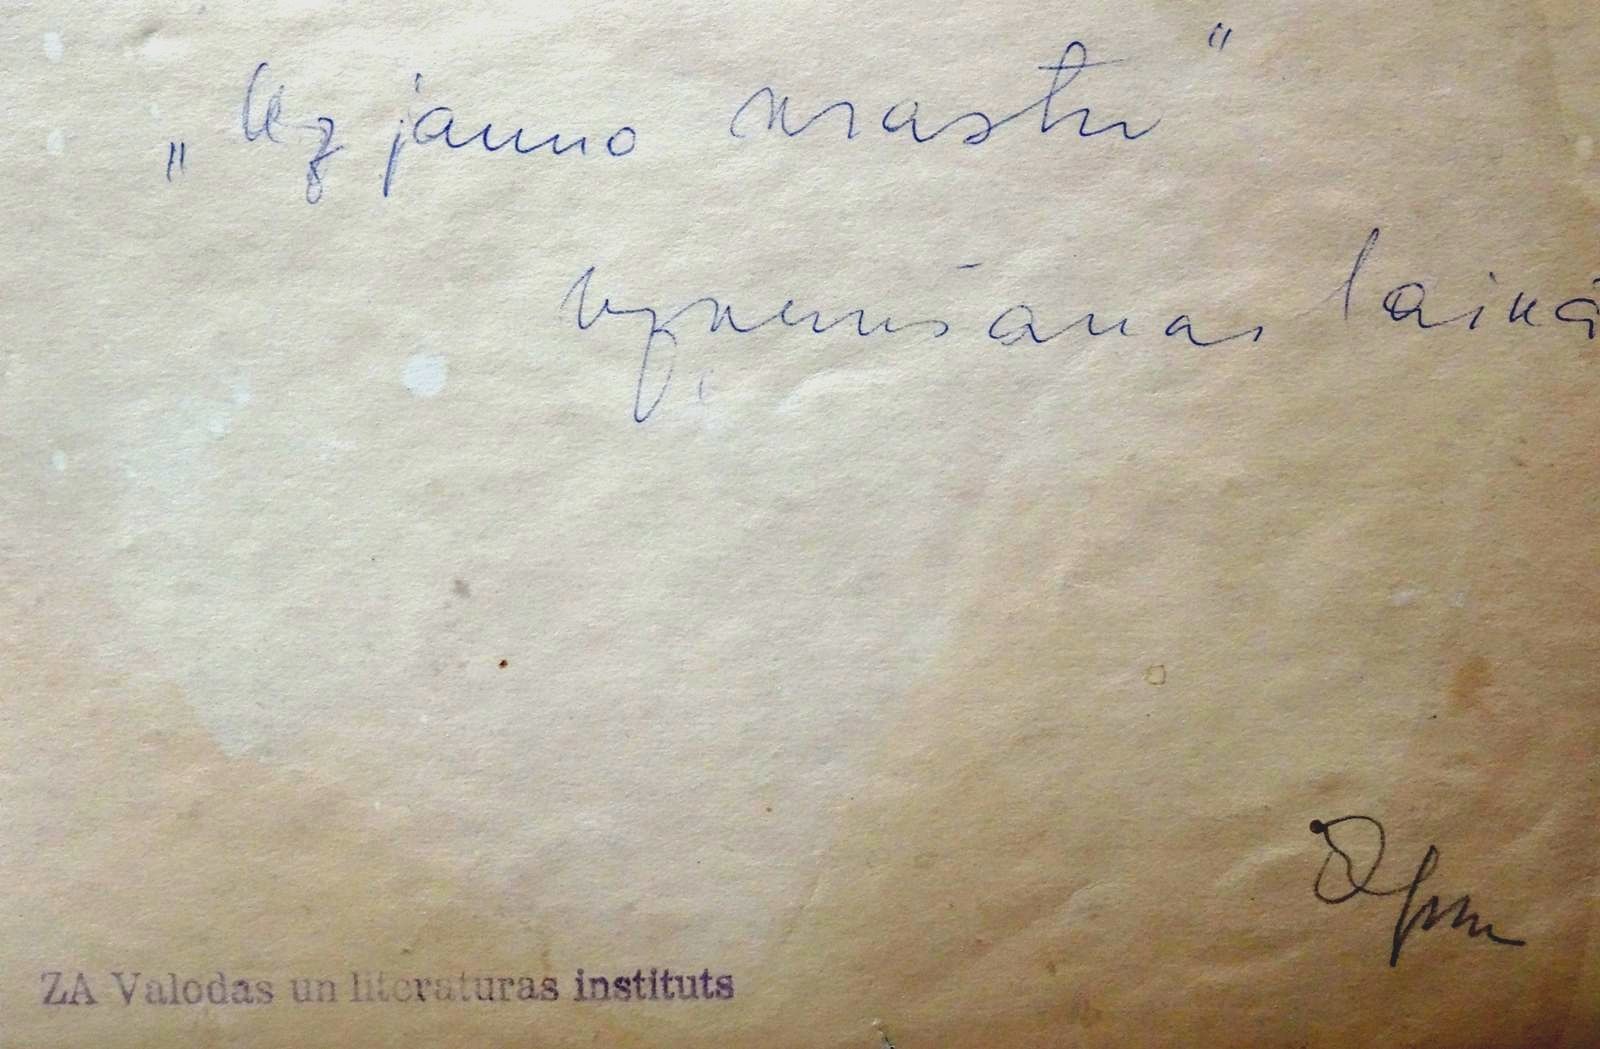 „Uz jauno krastu"
uzņemšanas laikā
ZA Valodas un literaturas instituts